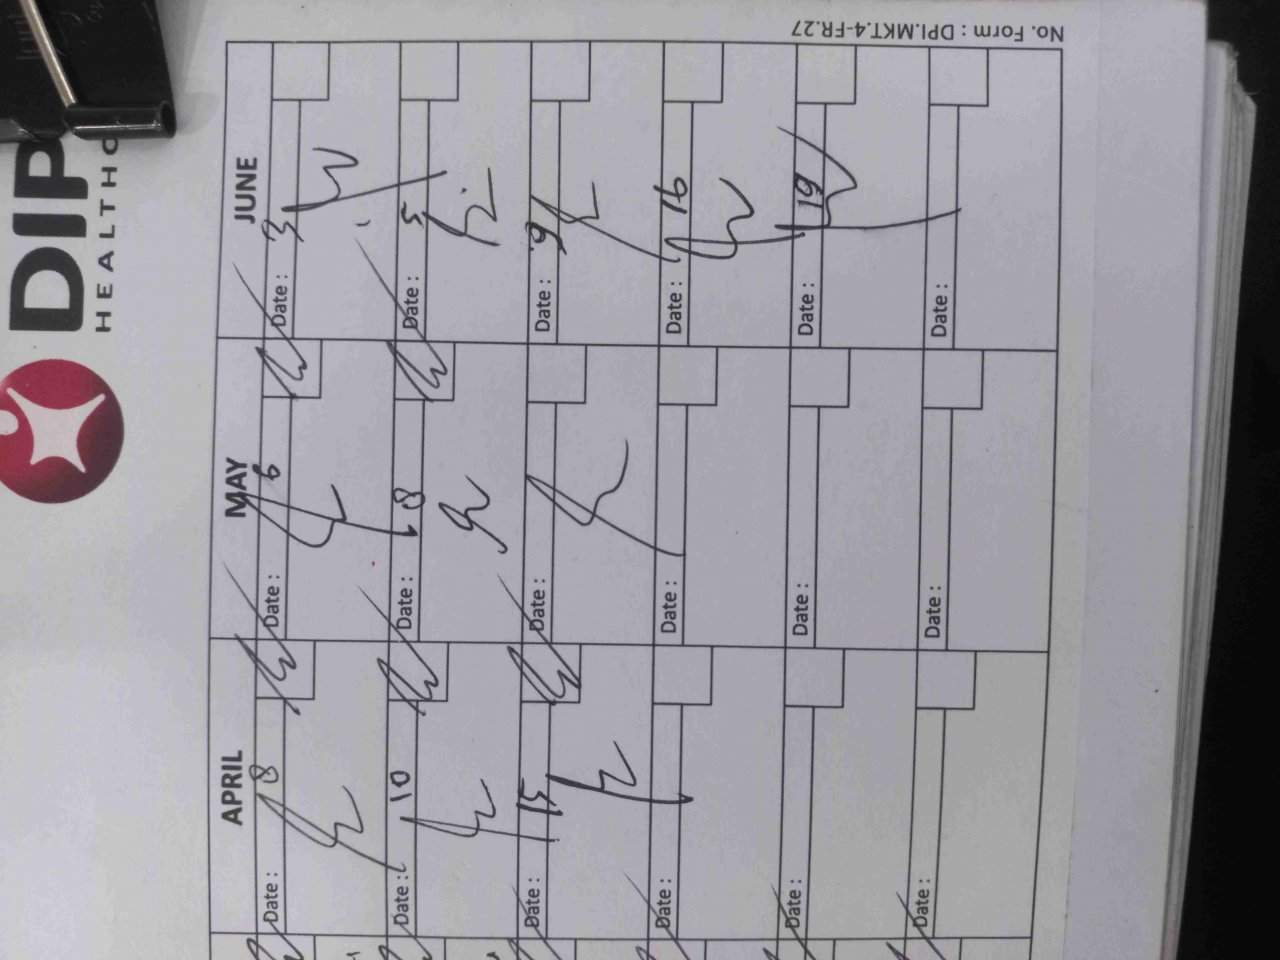 DIP
HEALTHC
APRIL MAY JUNE
Date : 8 Date : 6 Date : 3
Date : 10 Date : 8 Date : 5
Date : 15 Date : Date : 9
Date : Date : Date : 16
Date : Date : Date : 19
Date : Date : Date :
No. Form : DPI.MKT.4-FR.27